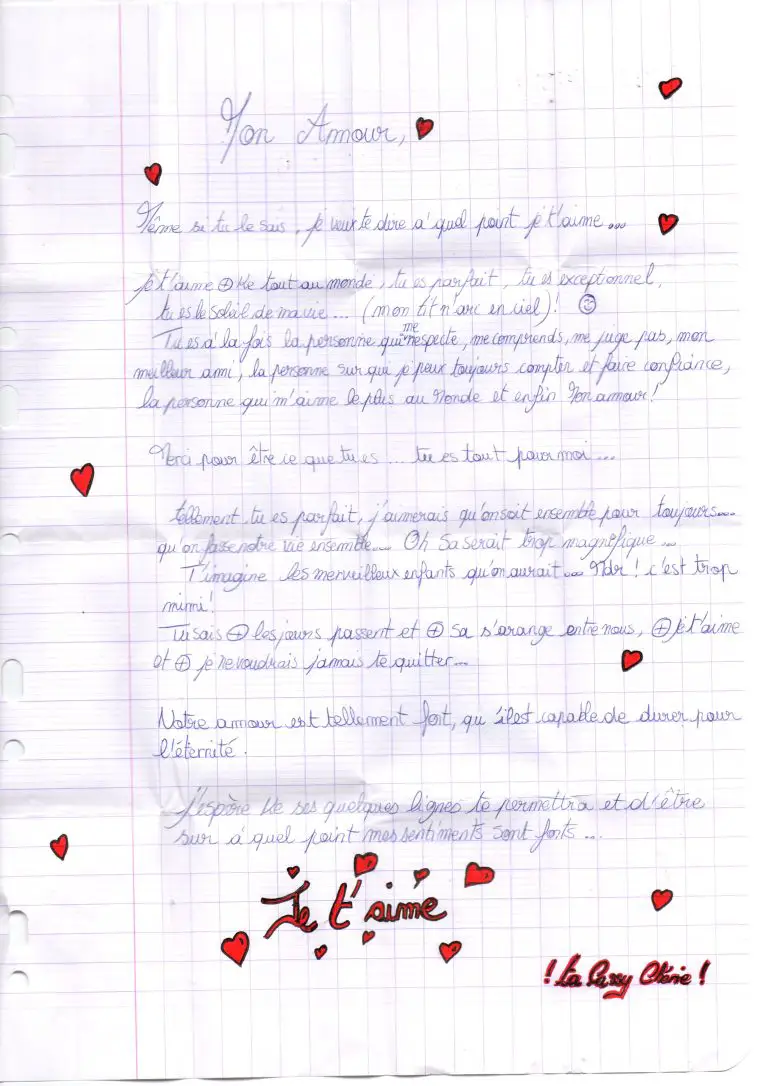 Mon Amour,
Même si tu le sais, je veux te dire a' quel point je t'aime...
je t'aime ⊕ Ke tout au monde, tu es parfait, tu es exceptionnel,
tu es le soleil de ma vie... (mon tit n'arc en ciel)! ☺
Tu es a' la fois la personne qui me respecte, me comprends, me juge pas, mon
meilleur ami, la personne sur qui je peux toujours compter et faire confiance,
la personne qui m'aime le plus au Monde et enfin Mon amour!
Merci pour être ce que tu es ... tu es tout pour moi ...
tellement tu es parfait, j'aimerais qu'on soit ensemble pour toujours....
qu'on fasse notre vie ensemble.... Oh Sa serait trop magnifique ...
T'imagine les merveilleux enfants qu'on aurait ... Mdr ! c'est trop
mimi!
Tu sais ⊕ les jours passent et ⊕ sa s'arange entre nous, ⊕ je t'aime
et ⊕ je ne voudrais jamais te quitter...
Notre amour est tellement fort, qu'il est capable de durer pour
l'éternité.
J'espère Ke ses quelques lignes te permettra et d'être
sur a' quel point mes sentiments sont forts ...
Je t'aime
! Ta Chérie !